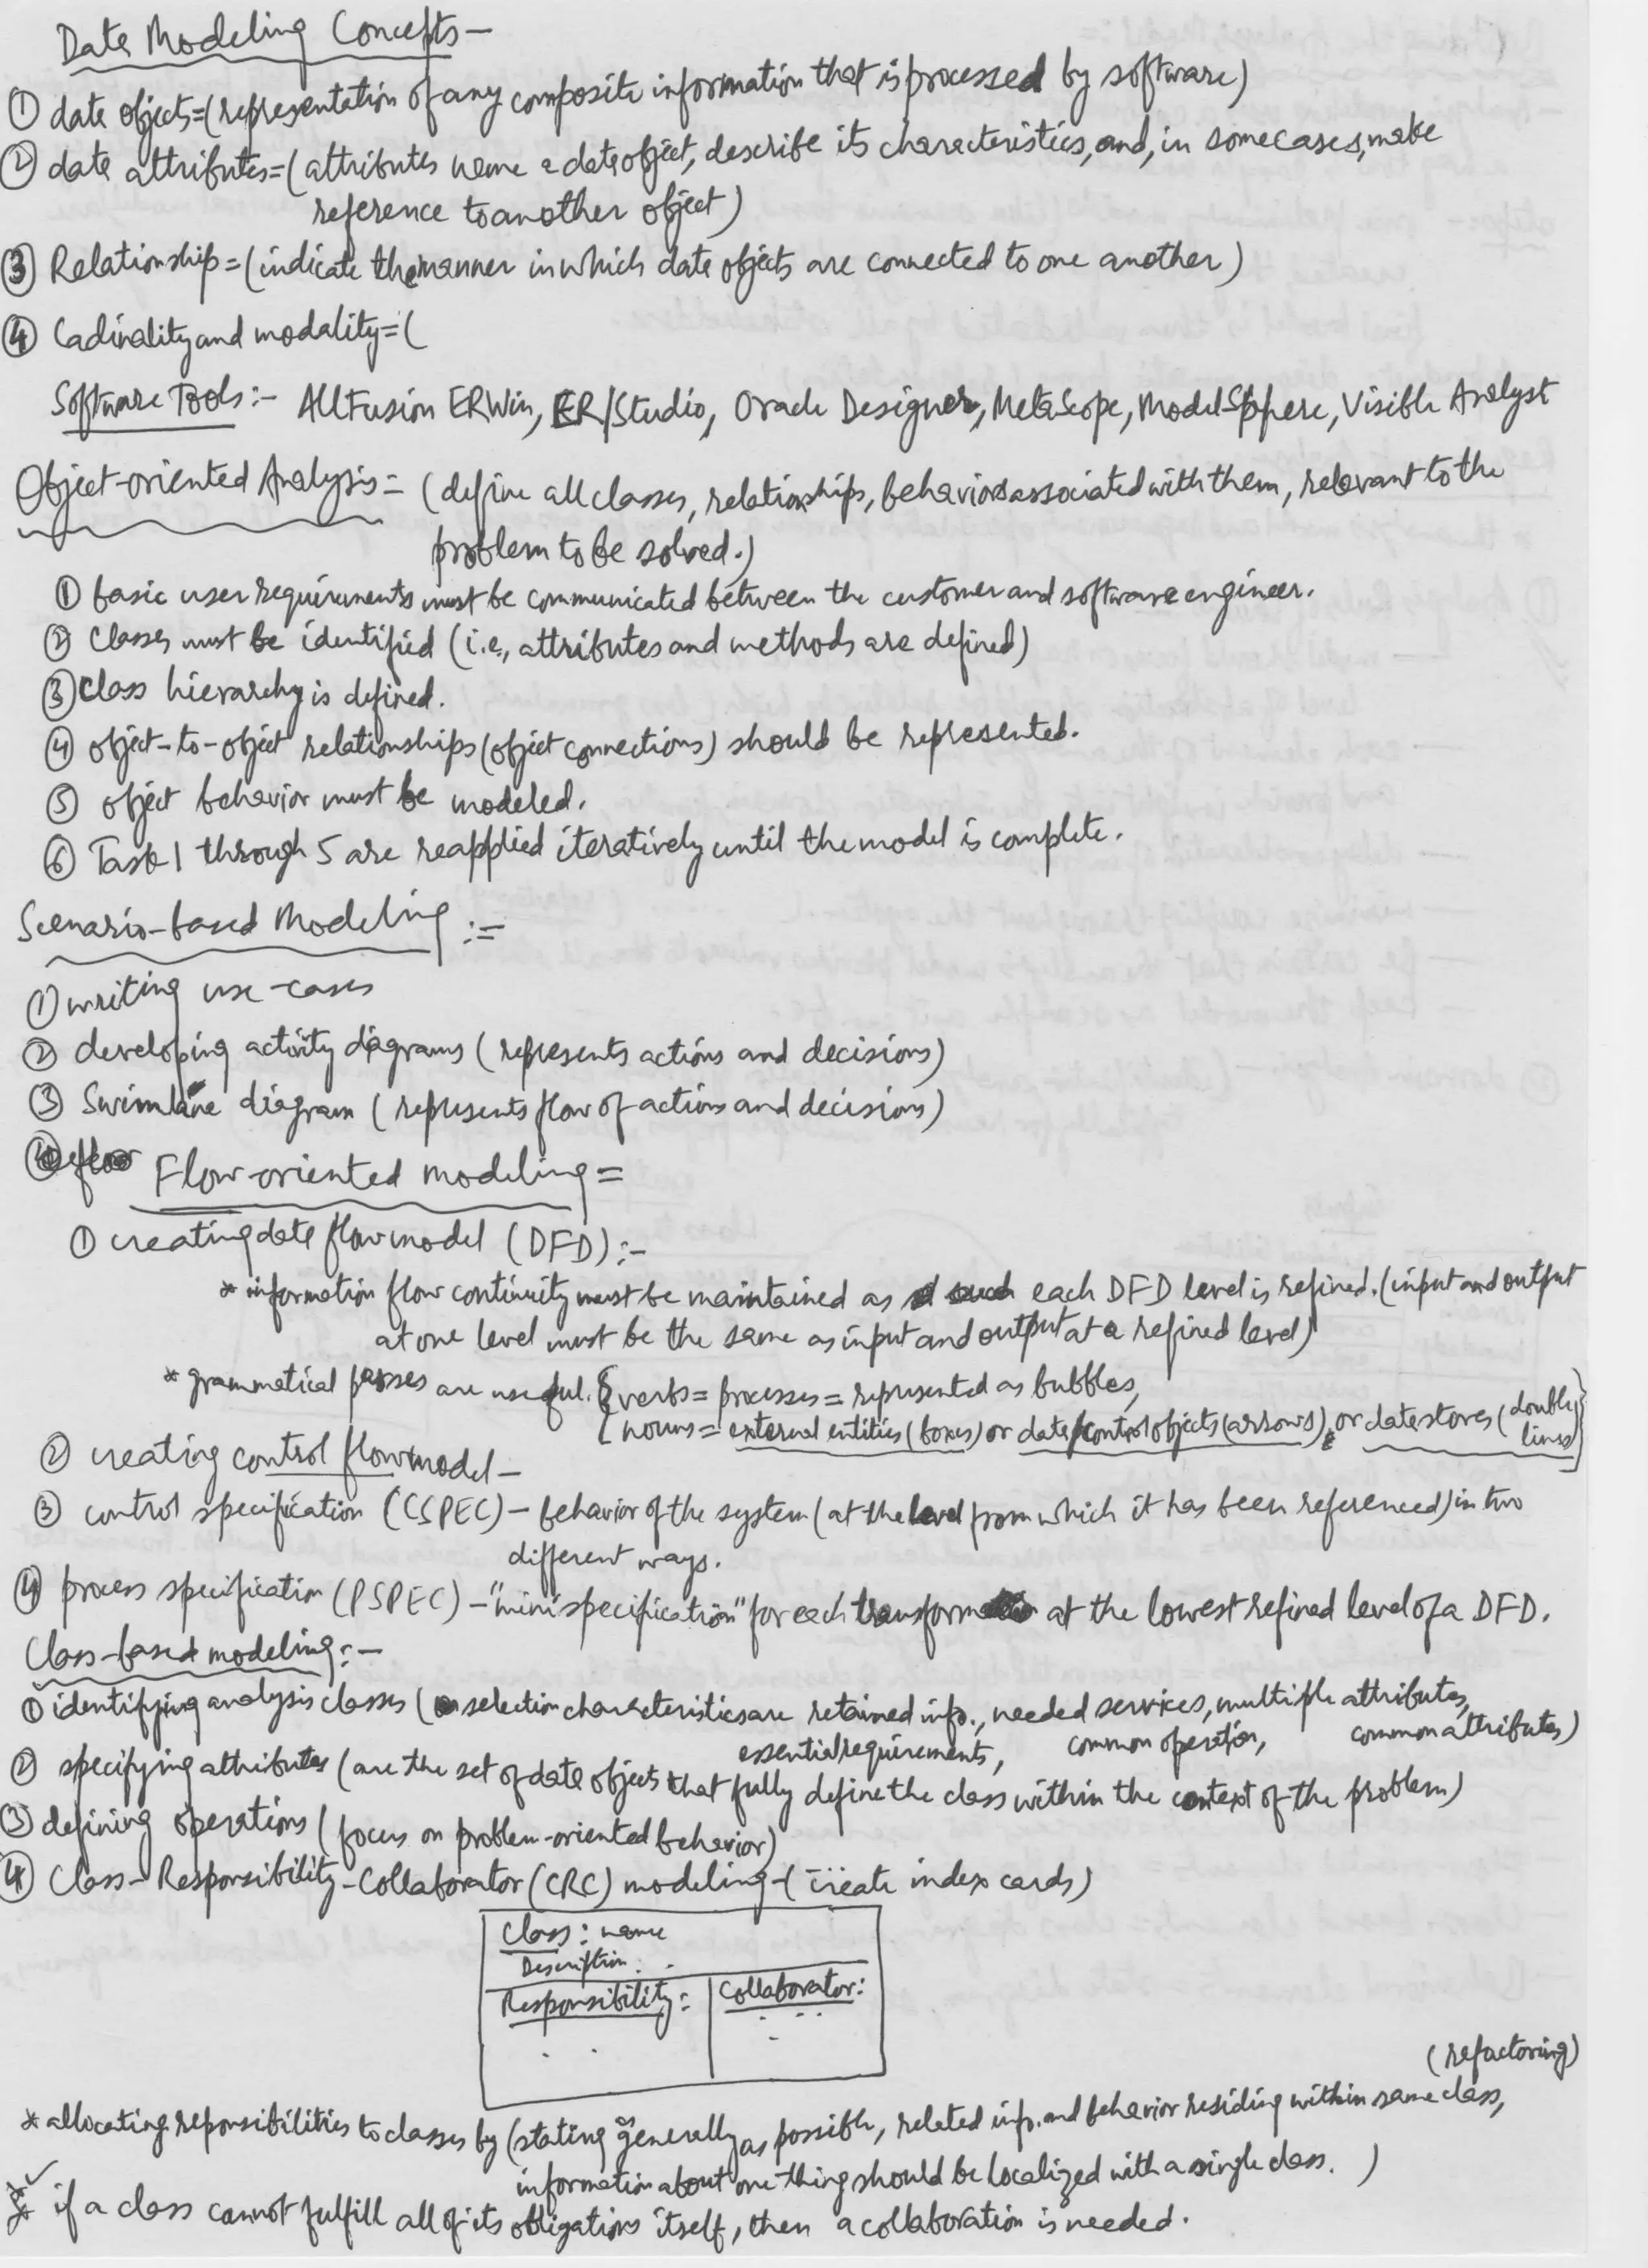 Data Modeling Concepts-
① data objects=(representation of any composite information that is processed by software)
② data attributes=(attributes name a data object, describe its characteristics, and, in some cases, make
reference to another object)
③ Relationship=(indicate the manner in which data objects are connected to one another)
④ Cadinality and modality=(
Software Tools:- AllFusion ERWin, ER/Studio, Oracle Designer, MetaScope, ModelSphere, Visible Analyst
Object-oriented Analysis= (define all classes, relationships, behaviors associated with them, relevant to the
problem to be solved.)
① basic user requirements must be communicated between the customer and software engineer.
② Classes must be identified (i.e., attributes and methods are defined)
③ Class hierarchy is defined.
④ object-to-object relationships (object connections) should be represented.
⑤ object behavior must be modeled.
⑥ Task 1 through 5 are reapplied iteratively until the model is complete.
Scenario-based Modeling :=
① writing use-cases
② developing activity diagrams (represents actions and decisions)
③ Swimlane diagram (represents flow of actions and decisions)
Flow-oriented modeling=
① creating data flow model (DFD):-
* information flow continuity must be maintained as each DFD level is refined. (input and output
at one level must be the same as input and output at a refined level)
* grammatical parses are useful. {verbs = processes = represented as bubbles,
nouns = external entities (boxes) or data/control objects (arrows), or data stores (double
lines)}
② creating control flow model-
③ control specification (CSPEC)- behavior of the system (at the level from which it has been referenced) in two
different ways.
④ process specification (PSPEC)-"minispecification" for each transform at the lowest refined level of a DFD.
Class-based modeling:-
① identifying analysis classes (selection characteristics are retained info., needed services, multiple attributes,
essential requirements, common operation, common attributes)
② specifying attributes (are the set of data objects that fully define the class within the context of the problem)
③ defining operations (focus on problem-oriented behavior)
④ Class-Responsibility-Collaborator (CRC) modeling-(create index cards)
Class: name
Description. .
Responsibility: Collaborator:
(refactoring)
* allocating reponsibilities to classes by (stating generally as possible, related info. and behavior residing within same class,
information about one thing should be localized with a single class. )
* if a class cannot fulfill all of its obligations itself, then a collaboration is needed.